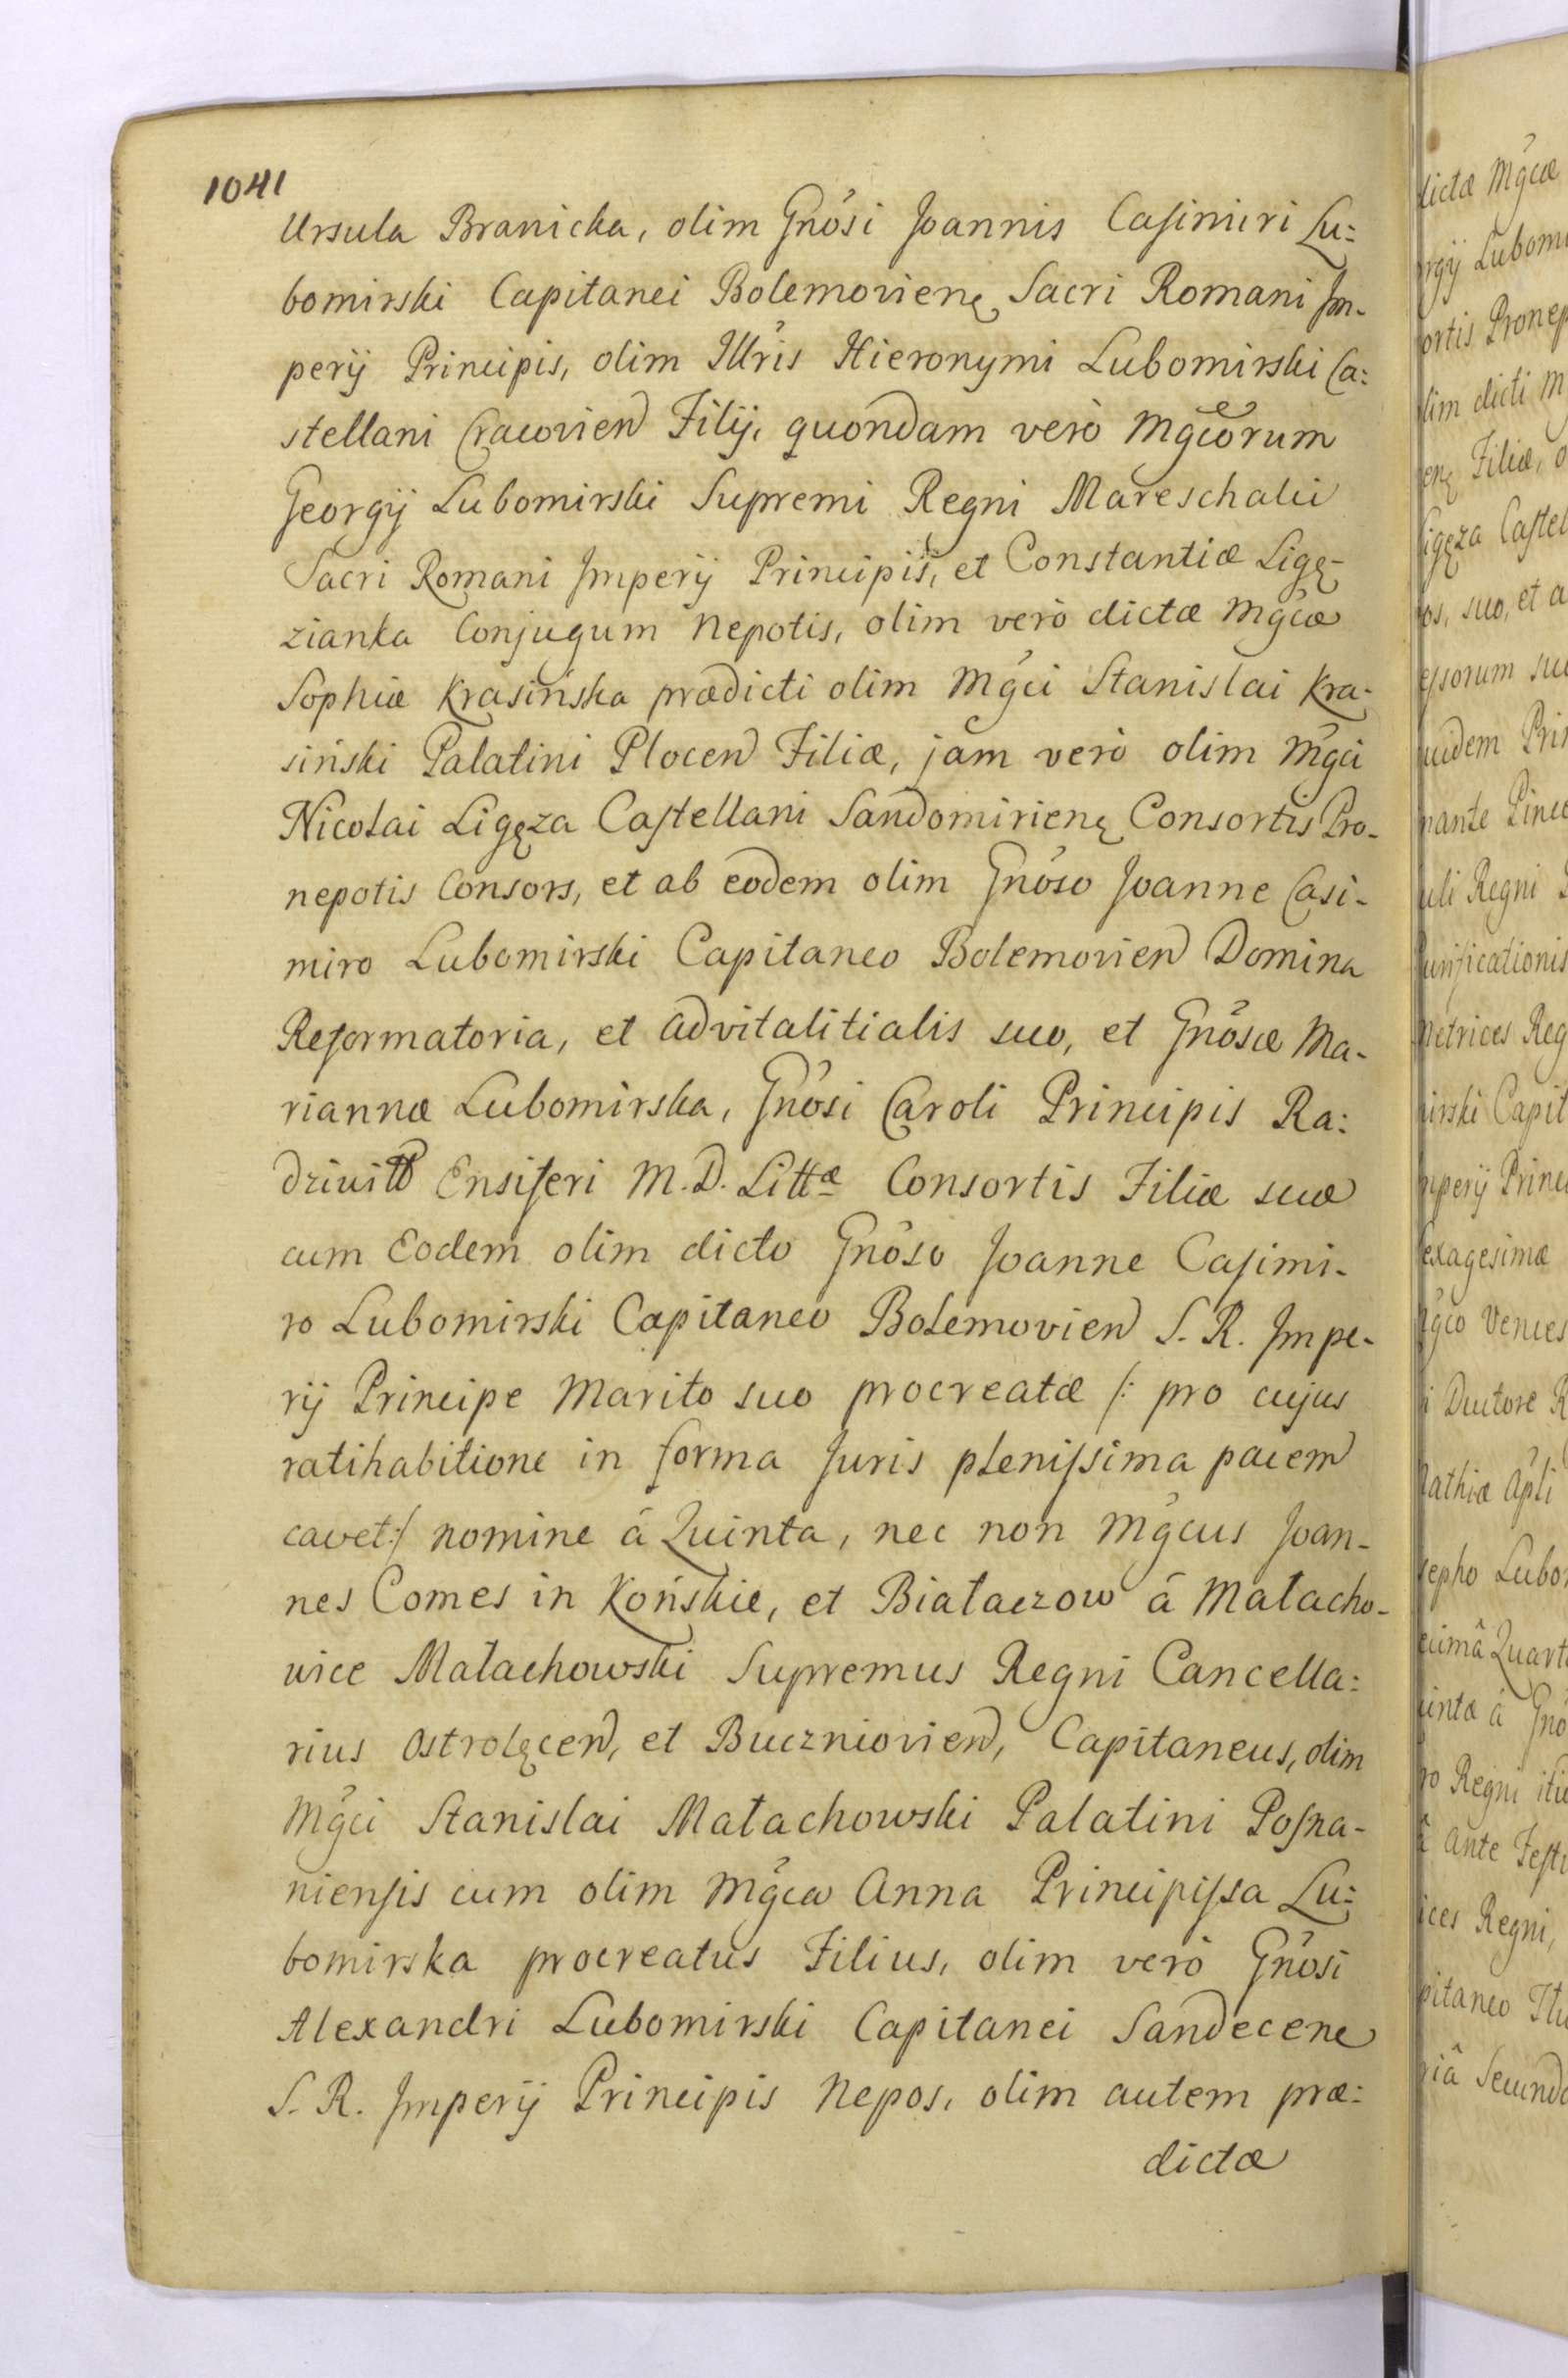 1041
Ursula Branicka, olim Gnosi Joannis Casimiri Lu=
bomirski Capitanei Bolemovienę Sacri Romani Im-
perij Principis, olim Illris Hieronymi Lubomirski Ca=
stellani Cracovien Filij, quondam verò Mgcorum
Georgij Lubomirski Supremi Regni Mareschalci
Sacri Romani Imperij Principis, et Constantiæ Ligę-
zianka Conjugum Nepotis, olim verò dictæ Mgcæ
Sophiæ Krasińska prædicti olim Mgci Stanislai Kra-
siński Palatini Plocen Filiæ, jam verò olim Mgci
Nicolai Ligęza Castellani Sandomirienę Consortis Pro-
nepotis Consors, et ab eodem olim Gnoso Joanne Casi-
miro Lubomirski Capitaneo Bolemovien Domina
Reformatoria, et advitalitialis suo, et Gnosæ Ma-
riannæ Lubomirska, Gnosi Caroli Principis Ra=
dziwiłł Ensiferi M. D. Littæ Consortis Filiæ suæ
cum Eodem olim dicto Gnoso Joanne Casimi-
ro Lubomirski Capitaneo Bolemovien S. R. Impe-
rij Principe Marito suo procreatæ /: pro cujus
ratihabitione in forma Juris plenissima pacem
cavet :/ nomine á Quinta, nec non Mgcus Joan-
nes Comes in Końskie, et Białaczow á Małacho-
wice Małachowski Supremus Regni Cancella=
rius Ostrolęcen, et Buczniovien, Capitaneus, olim
Mgci Stanislai Małachowski Palatini Posna-
niensis cum olim Mgca Anna Principissa Lu=
bomirska procreatus Filius, olim verò Gnosi
Alexandri Lubomirski Capitanei Sandecene
S. R. Imperij Principis Nepos, olim autem præ=
dictæ